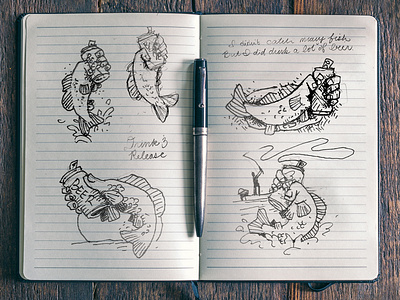 Drink &
Release
I didn't catch many fish
But I did drink a lot of beer